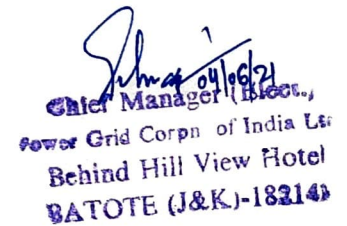 04/06/21
Chief Manager (Elect.,
Power Grid Corpn of India Lt
Behind Hill View Hotel
BATOTE (J&K)-182143